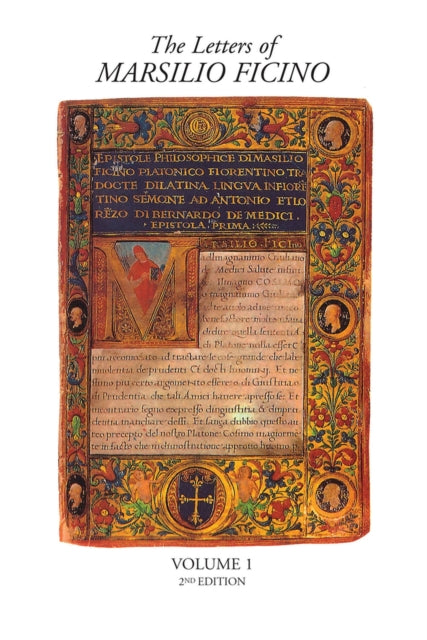 The Letters of
MARSILIO FICINO
EPISTOLE PHILOSOPHICE DI MASILIO
FICINO PLATONICO FIORENTINO TRA
DOCTE DI LATINA LINGVA IN FIORE
TINO SEMONE AD ANTONIO ET LO
RĒZO DI BERNARDO DE MEDICI.
EPISTOLA PRIMA
M
ARSILIO FICINO
almagnanimo Giuliano
de Medici Salute
Ilmagno COSMO
magnanimo Giuliano
quella
di Platone nulla esser
ad tractare le cose grande che la
de prudenti Et docti huomini. Et ne
simo piu certo argomento essere di Giustitia
di Prudentia che tali Amici havere apresso se. Et
contrario segno expresso dingiustitia &
dentia mancharedessi. Et sanza dubbio questo
reo precepto del nostro Platone: Cosimo magiorme
in facto che in dimonstratione approvo
VOLUME 1
2ND EDITION